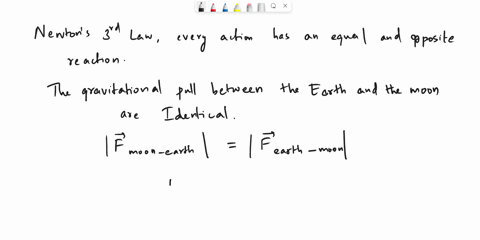 Newton's 3rd Law, every action has an equal and opposite
reaction.
The gravitational pull between the Earth and the moon
are Identical.
|F⃗ moon-earth| = |F⃗ earth-moon|